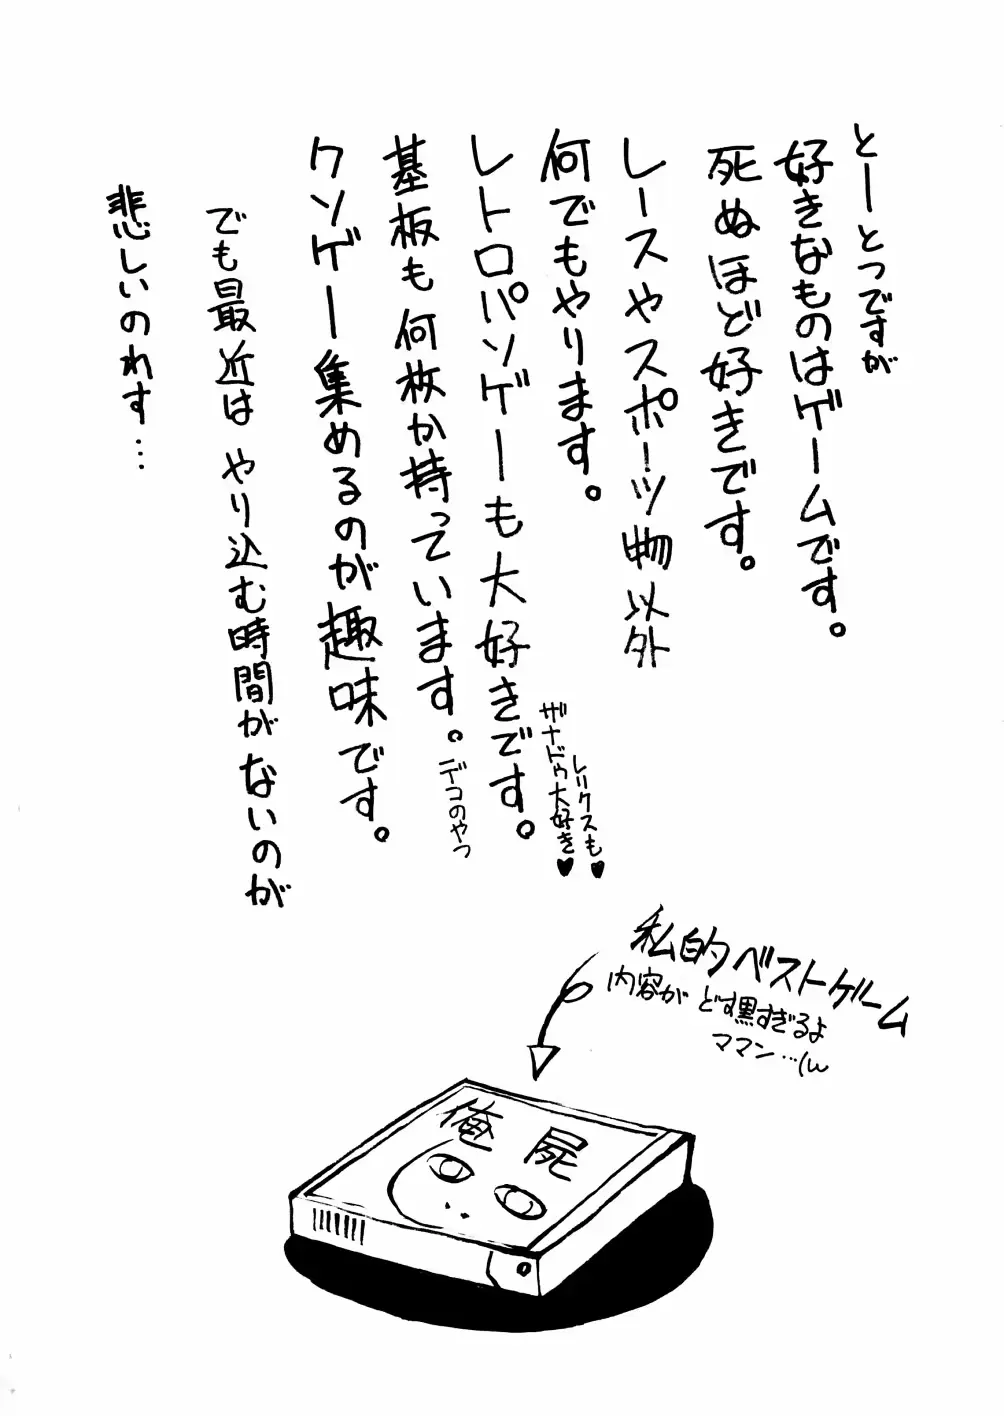 とーとつですが
好きなものはゲームです。
死ぬほど好きです。
レースやスポーツ物以外
何でもやります。
レトロパソゲーも大好きです。
レリクスも♥
ザナドゥ大好き♥
基板も何枚か持っています。
デコのやつ
クソゲー集めるのが趣味です。
でも最近はやり込む時間がないのが
悲しいのれす…
私的ベストゲーム
内容がどす黒すぎるよ
ママン…(ω
俺屍